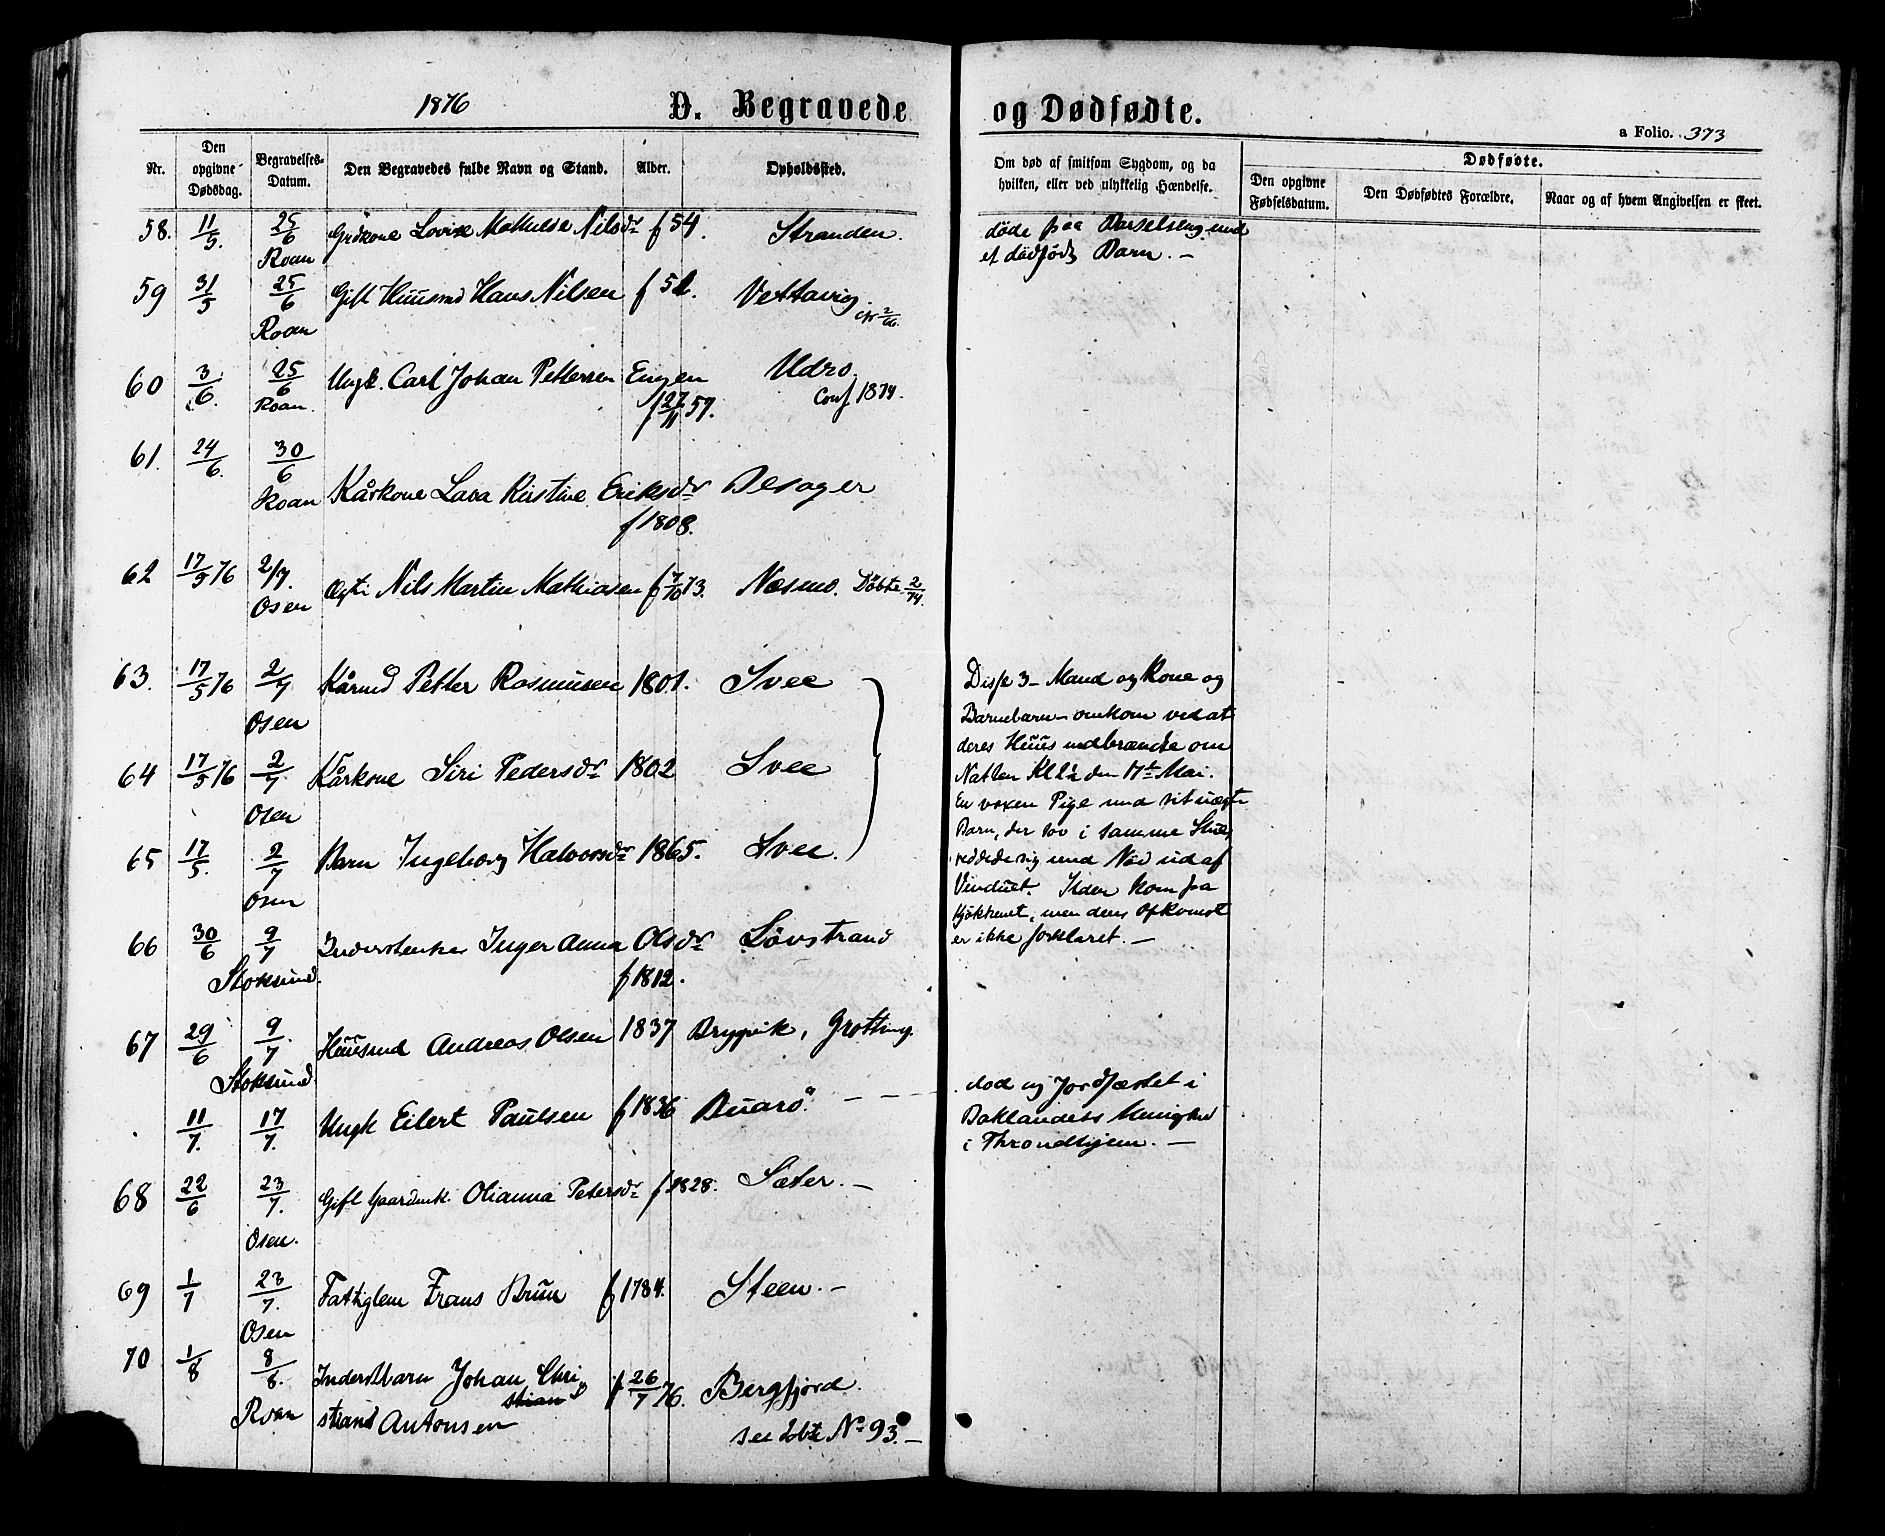 1876
D. Begravede og Dødfødte.
a Folio. 373
Nr.
Den opgivne Dødsdag.
Begravelses-Datum.
Den Begravedes fulde Navn og Stand.
Alder.
Opholdssted.
Om død af smitsom Sygdom, og da hvilken, eller ved ulykkelig Hændelse.
Dødfødte.
Den opgivne Fødselsdatum.
Den Dødfødtes Forældre.
Naar og af hvem Angivelsen er skeet.
58. 11/5. 25/6 Grdkone Lovise Mathilde Nilsdr f 54. Stranden. døde paa Barselseng med
Roan et dødfødt Barn. —
59 31/5 25/6 Gift Huusmd Hans Nilsen f 51. Vettavig.
Roan
60 3/6. 25/6 Ungk. Carl Johan Pettersen Engen Udro.
Roan. f 27/11 59. Conf 1874.
61. 24/6. 30/6
Roan Kårkone Lava Kirstine Eriksdr Besager
f 1808.
62 17/5 76 2/7. Ægt: Nils Martin Mathiasen f 7/10 73. Næsmo. Døbte 2/74.
Osen
63. 17/5 76 2/7 Kårmd Petter Rasmusen 1801. Svee
Osen
64 17/5 76 2/7 Kårkone Siri Pedersdr 1802 Svee
Osen
65 17/5. 2/7 Barn Ingeborg Halvorsdr 1865. Svee.
Osen
Disse 3 — Mand og Kone og
Barnebarn — omkom ved at
deres Huus nedbrændte om
Natten Kl 1½ den 17t Mai.
En voxen Pige med sit uægte
Barn, der sov i samme Stue,
reddede sig med Nød ud af
Vinduet. Ilden kom fra
Kjøkkenet, men dens Opkomst
er ikke forklaret. —
66 30/6 9/7 Inderstenke Inger Anna Olsdr Løvstrand
Stoksund. f 1812.
67 29/6 9/7 Huusmd Andreas Olsen 1837 Brygvik, Grotting.
Stoksund
11/7. 17/7. Ungk Eilert Paulsen f 1836 Buarø. — — —
død og Jordfæstet i
Baklandets Menighed
i Throndhjem. —
68 22/6 23/7. Gift Gaardmk. Olianna Petersdr f 1828. Sæter. —
Osen.
69 1/7 23/7. Fattiglem Frans Bruun f 1784. Steen. —
Osen
70 1/8 8/8. Inderst Barn Johan Chri
stian
Roan Antonsen f 26/7 76. Bergfjord.
see døbte No 93. —